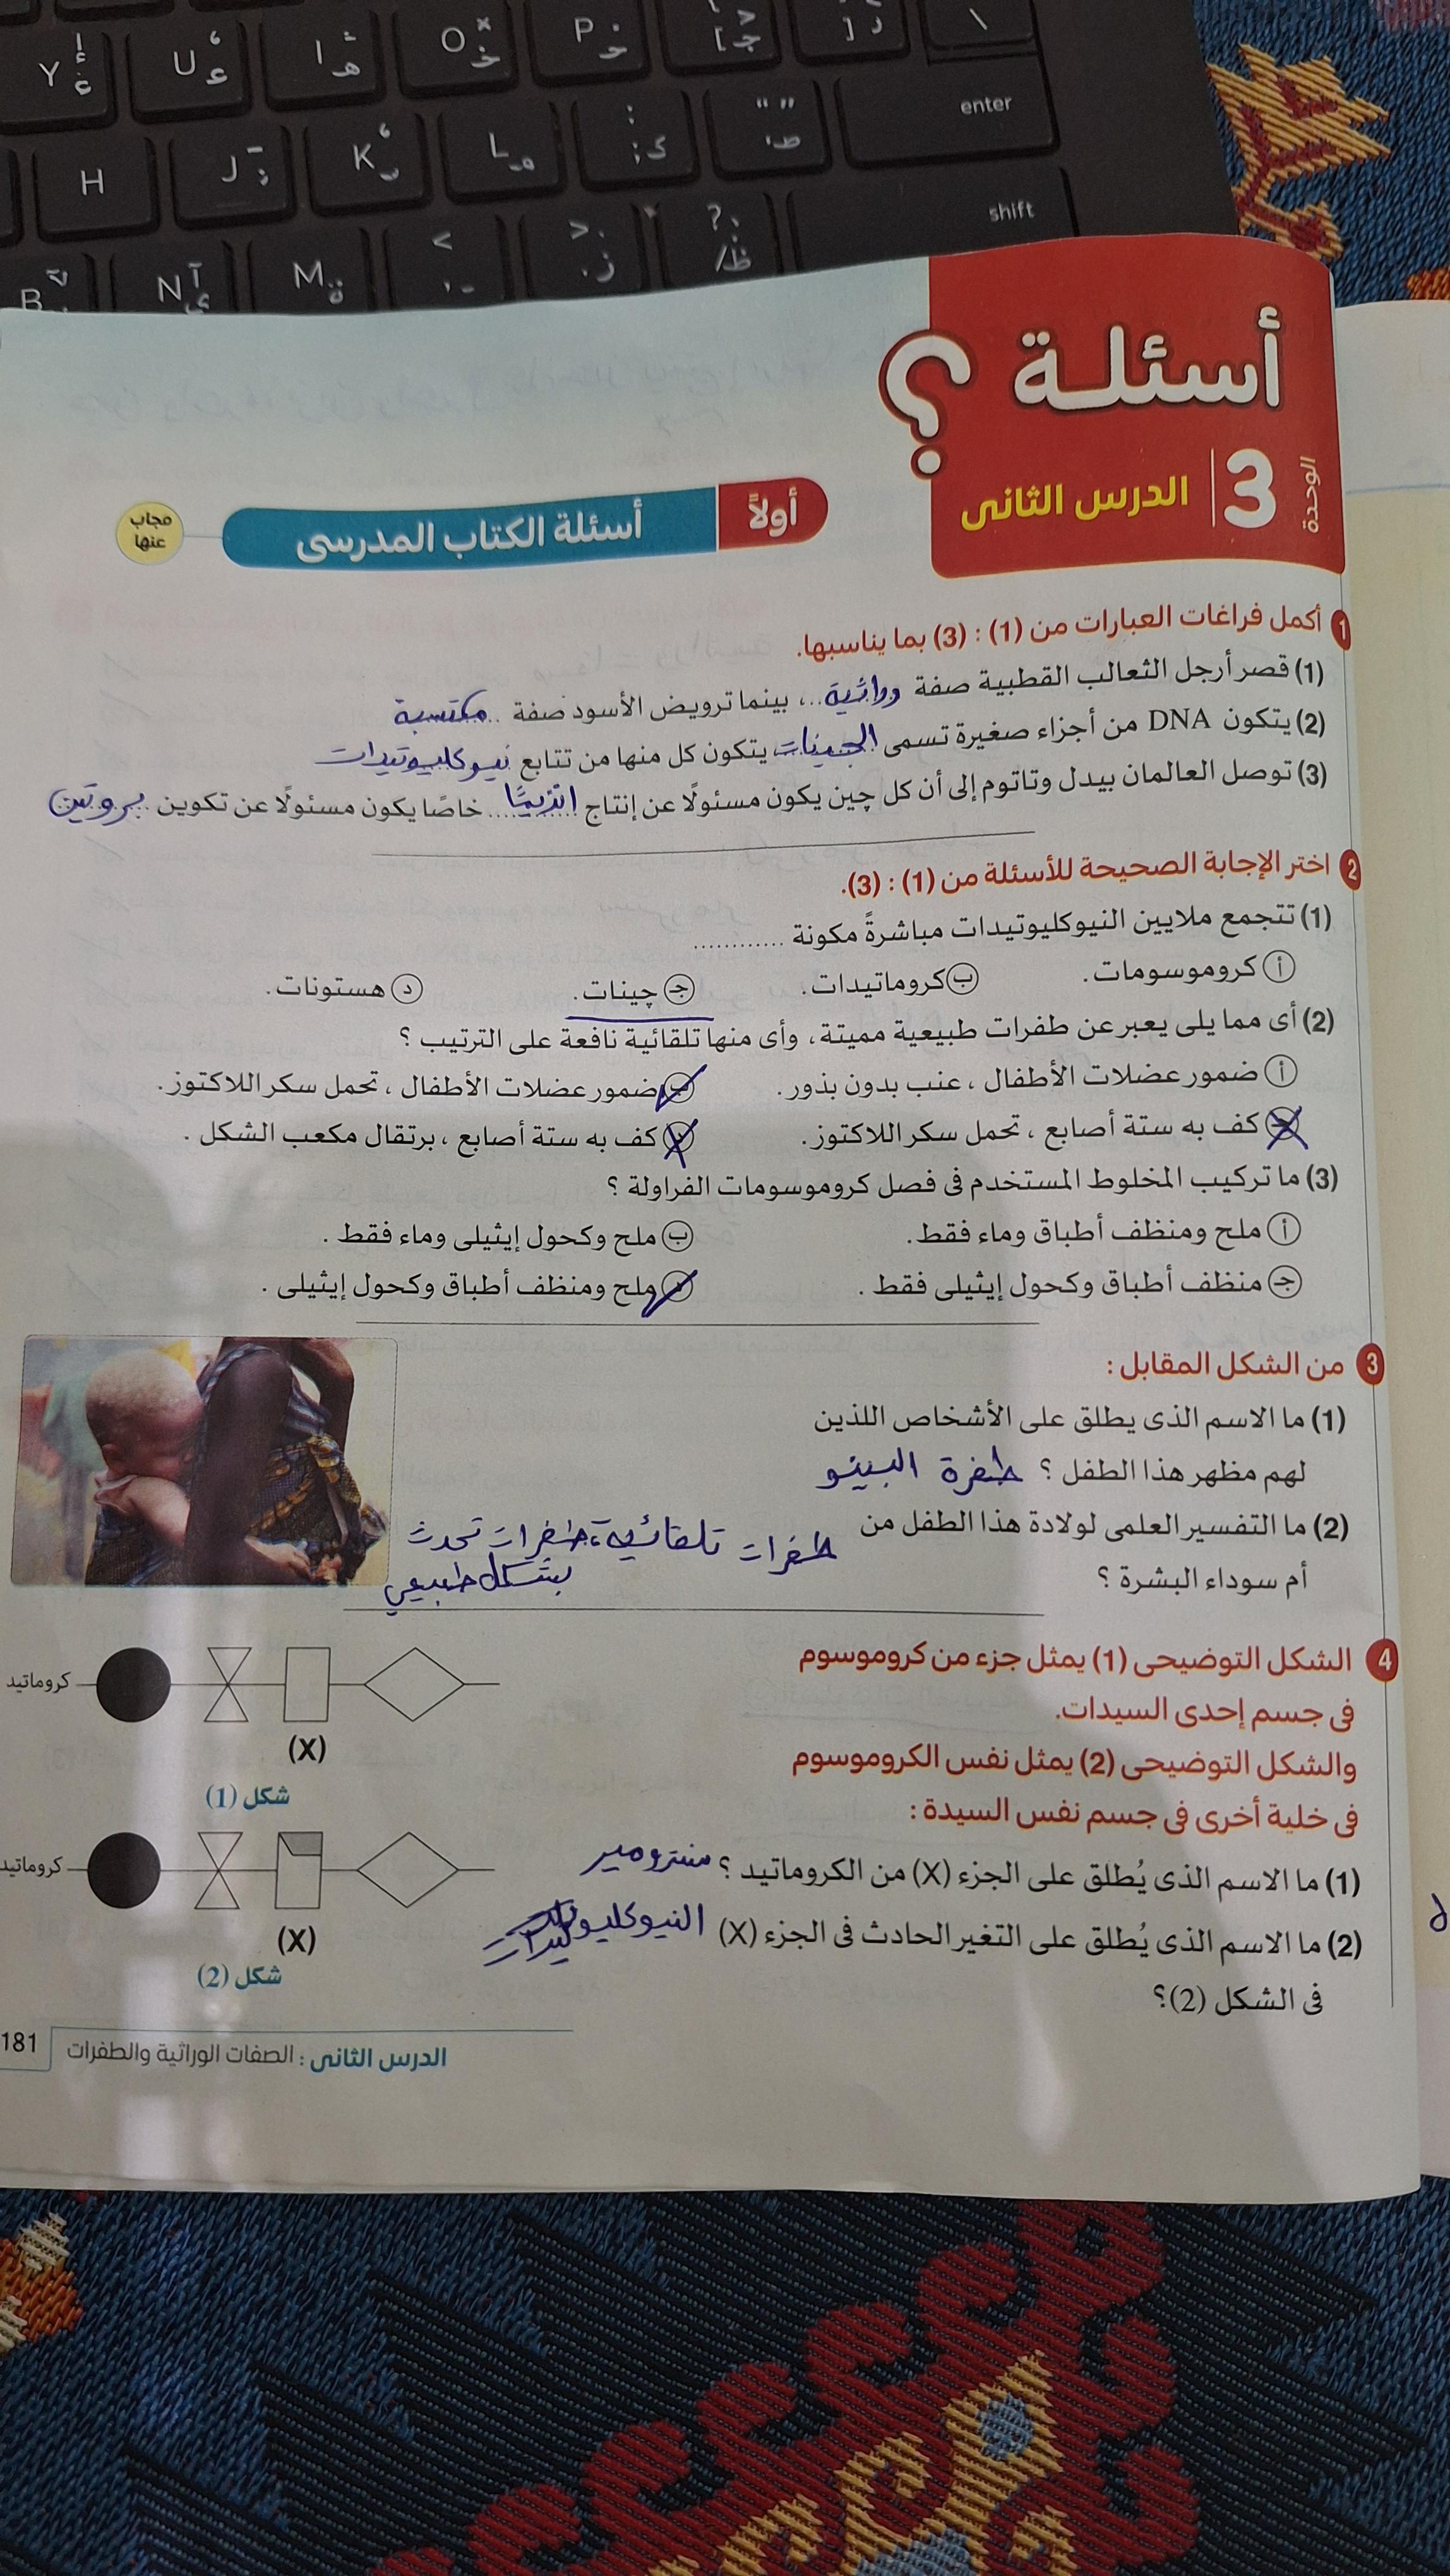 Y إ غ
U ‘ ع
I ÷ ه
O × خ
P ؛ ح
[ < ج
] د
\
enter
H
J ـ ت
K ، ن
L م
: ; ك
" ط
shift
B
N آ ى
M ة
< , و
> . ز
? / ظ
أسئلة ؟
الوحدة 3 الدرس الثانى
أولاً أسئلة الكتاب المدرسى
مجاب عنها
1 أكمل فراغات العبارات من (1) : (3) بما يناسبها.
(1) قصر أرجل الثعالب القطبية صفة وراثية ..، بينما ترويض الأسود صفة .. مكتسبة
(2) يتكون DNA من أجزاء صغيرة تسمى الجينات يتكون كل منها من تتابع نيوكليوتيدات
(3) توصل العالمان بيدل وتاتوم إلى أن كل چين يكون مسئولًا عن إنتاج انزيمًا .. خاصًا يكون مسئولًا عن تكوين بروتين
2 اختر الإجابة الصحيحة للأسئلة من (1) : (3).
(1) تتجمع ملايين النيوكليوتيدات مباشرةً مكونة ............
أ كروموسومات. ب كروماتيدات. ج چينات. د هستونات.
(2) أى مما يلى يعبر عن طفرات طبيعية مميتة، وأى منها تلقائية نافعة على الترتيب ؟
أ ضمور عضلات الأطفال ، عنب بدون بذور. ب ضمور عضلات الأطفال ، تحمل سكر اللاكتوز.
ج كف به ستة أصابع ، تحمل سكر اللاكتوز. د كف به ستة أصابع ، برتقال مكعب الشكل .
(3) ما تركيب المخلوط المستخدم فى فصل كروموسومات الفراولة ؟
أ ملح ومنظف أطباق وماء فقط. ب ملح وكحول إيثيلى وماء فقط .
ج منظف أطباق وكحول إيثيلى فقط . د ملح ومنظف أطباق وكحول إيثيلى .
3 من الشكل المقابل :
(1) ما الاسم الذى يطلق على الأشخاص اللذين
لهم مظهر هذا الطفل ؟ طفرة البينو
(2) ما التفسير العلمى لولادة هذا الطفل من
أم سوداء البشرة ؟
طفرات تلقائية، طفرات تحدث
بشكل طبيعي
4 الشكل التوضيحى (1) يمثل جزء من كروموسوم
فى جسم إحدى السيدات.
والشكل التوضيحى (2) يمثل نفس الكروموسوم
فى خلية أخرى فى جسم نفس السيدة :
(1) ما الاسم الذى يُطلق على الجزء (X) من الكروماتيد ؟ سنترومير
(2) ما الاسم الذى يُطلق على التغير الحادث فى الجزء (X)
فى الشكل (2)؟
كروماتيد
(X)
شكل (1)
كروماتيد
(X)
شكل (2)
الدرس الثانى : الصفات الوراثية والطفرات 181